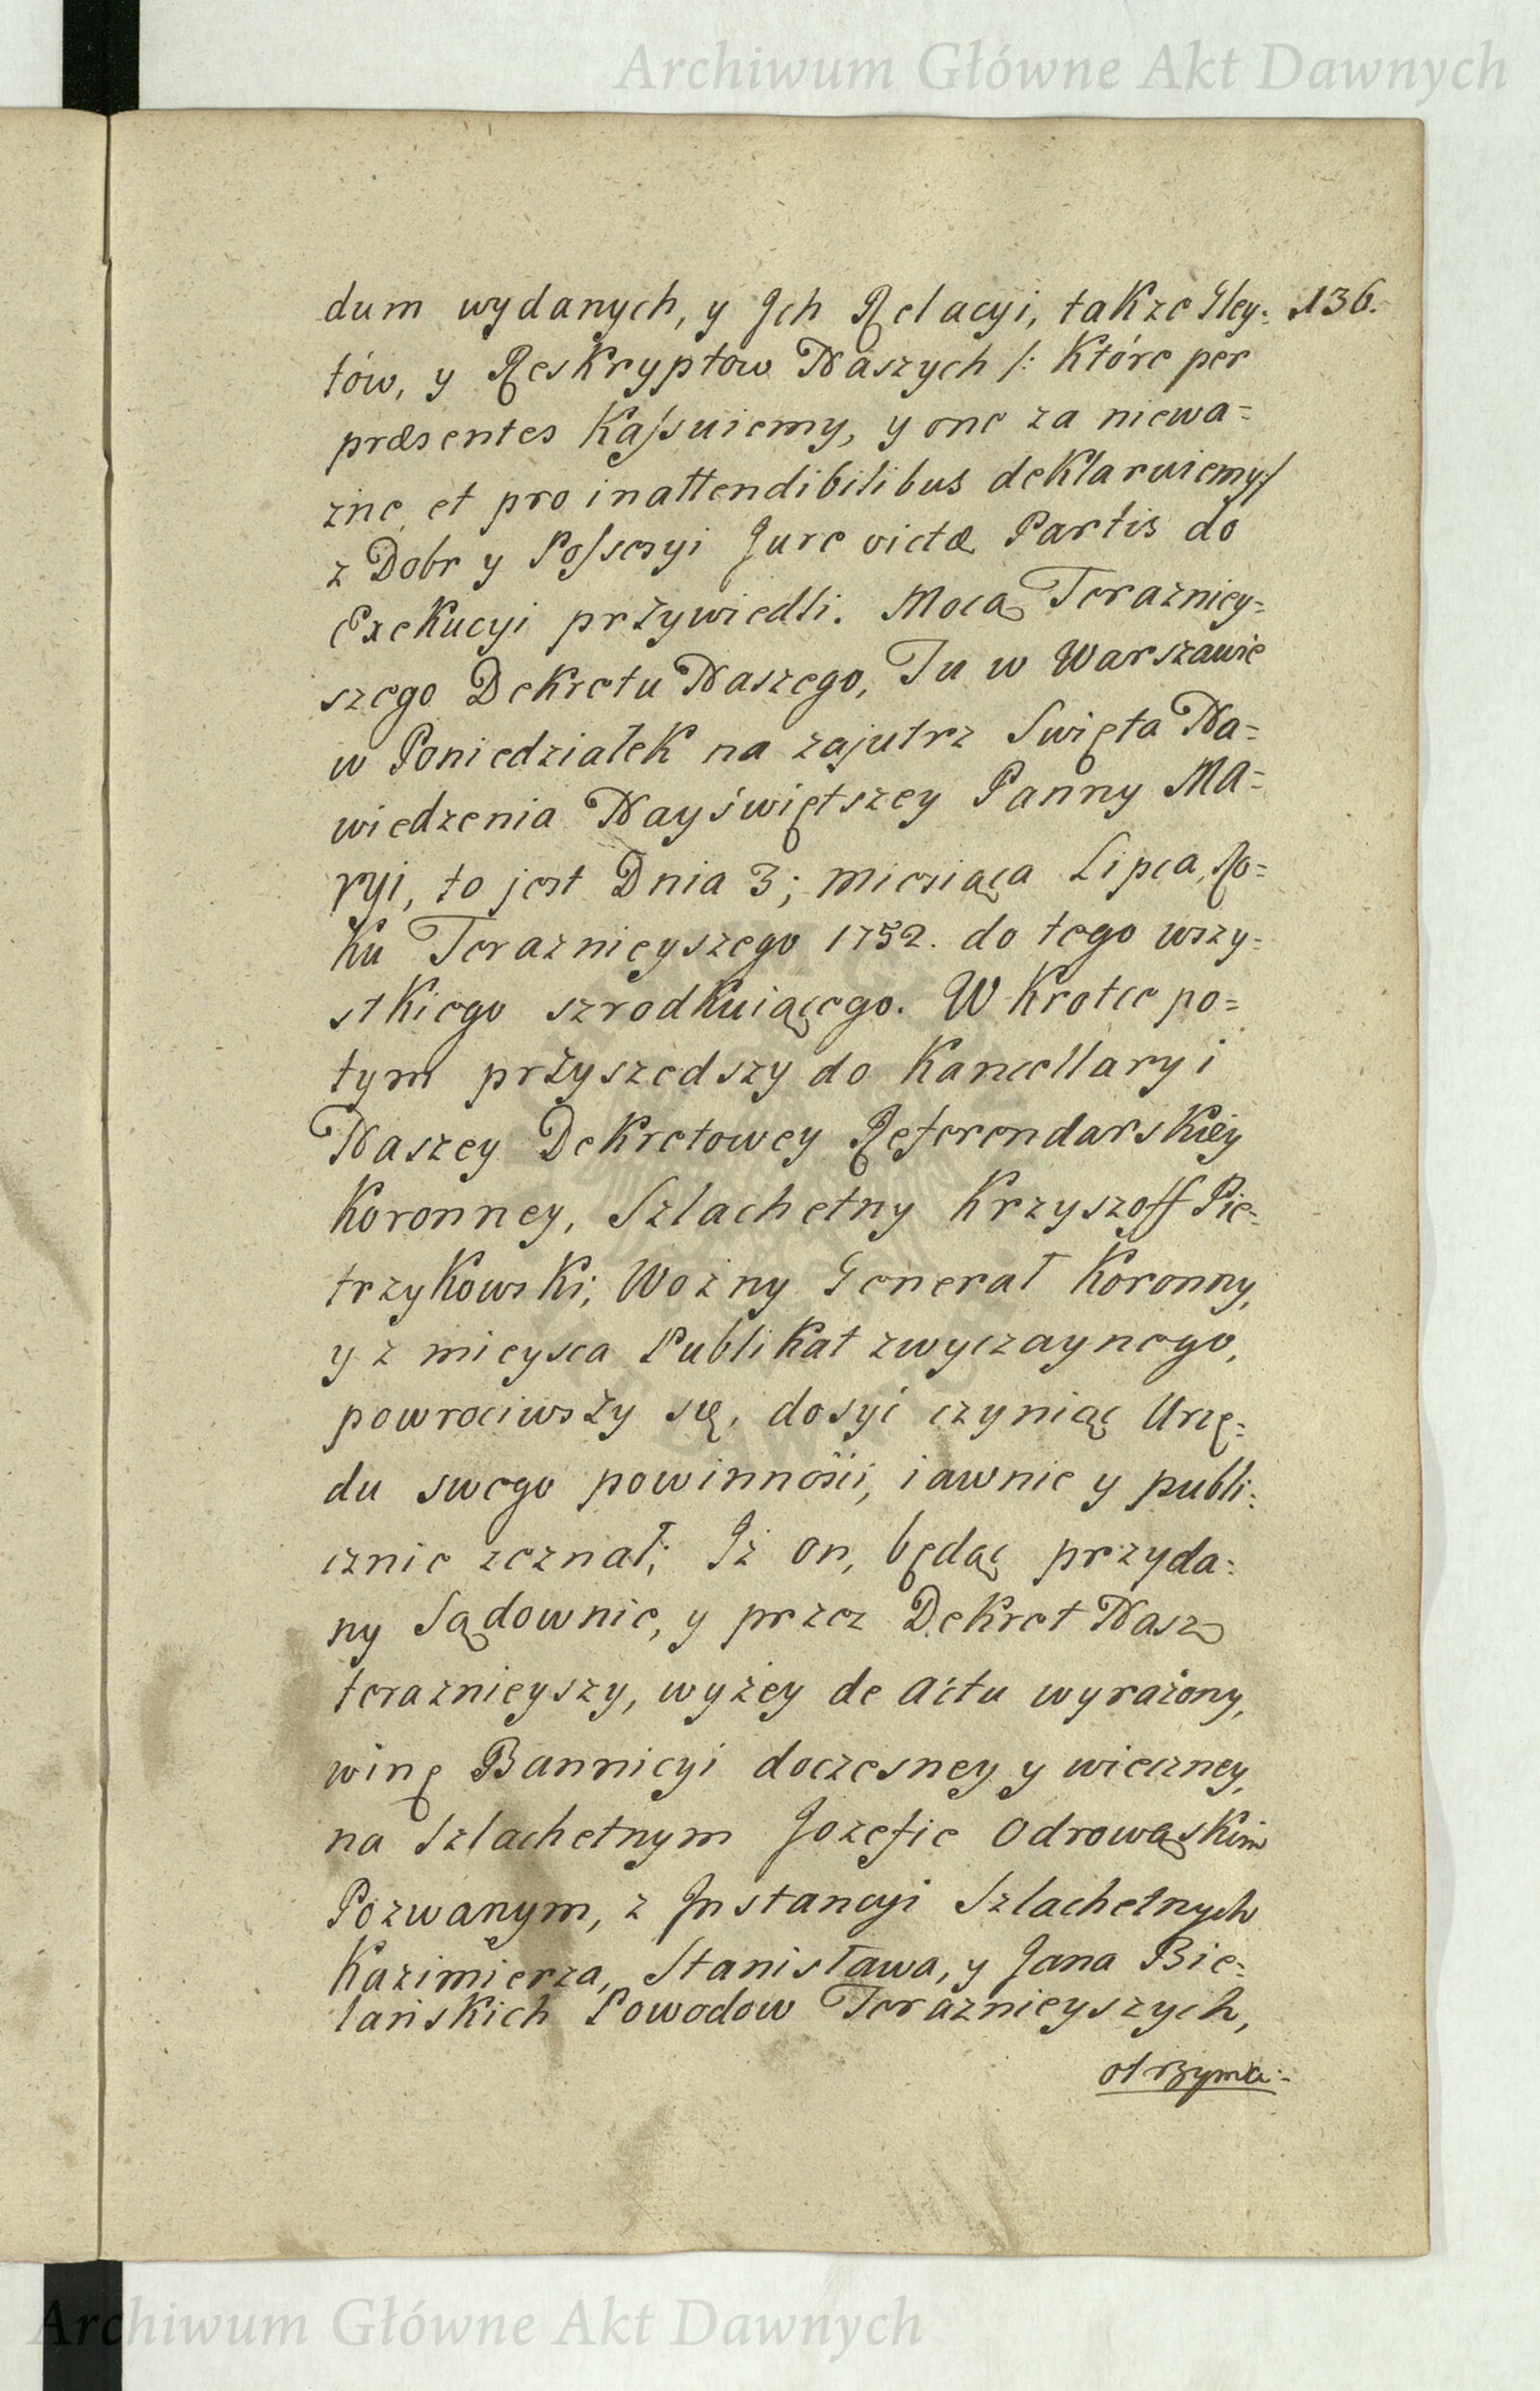 Archiwum Główne Akt Dawnych
dum wydanych, y Jch Relacyi, takze Gley= 136.
tów, y Reskryptow Naszych /: Które per
præsentes Kassuiemy, y one za niewa=
zne et pro inattendibilibus deklaruiemy:/
z Dobr y Possesyi Jure victæ Partis do
Exekucyi przywiedli. Mocą Terazniey=
szego Dekretu Naszego, Tu w Warszawie
w Poniedziałek na zajutrz Swięta Na=
wiedzenia Nayświętszey Panny Ma=
ryi, to jest Dnia 3; miesiąca Lipca, Ro=
ku Teraznieyszego 1752. do tego wszy=
stkiego szrodkuiącego. W Krotce po=
tym przyszedszy do Kancellaryi
Naszey Dekretowey Referendarskiey
Koronney, Szlachetny Krzysztoff Pie=
trzykowski, Wozny Generał Koronny,
y z mieysca Publikat zwyczaynego,
powrociwszy się, dosyć czyniąc Urzę=
du swego powinności, iawnie y publi=
cznie zeznał; Iz on, będąc przyda=
ny Sądownie, y przez Dekret Nasz
teraznieyszy, wyżey de actu wyrażony,
winę Bannicyi doczesney y wieczney,
na Szlachetnym Jozefie Odrowąskim
Pozwanym, z Jnstancyi Szlachetnych
Kazimierza, Stanisława, y Jana Bie=
lańskich Powodow Teraznieyszych,
otrzyma=
Archiwum Główne Akt Dawnych